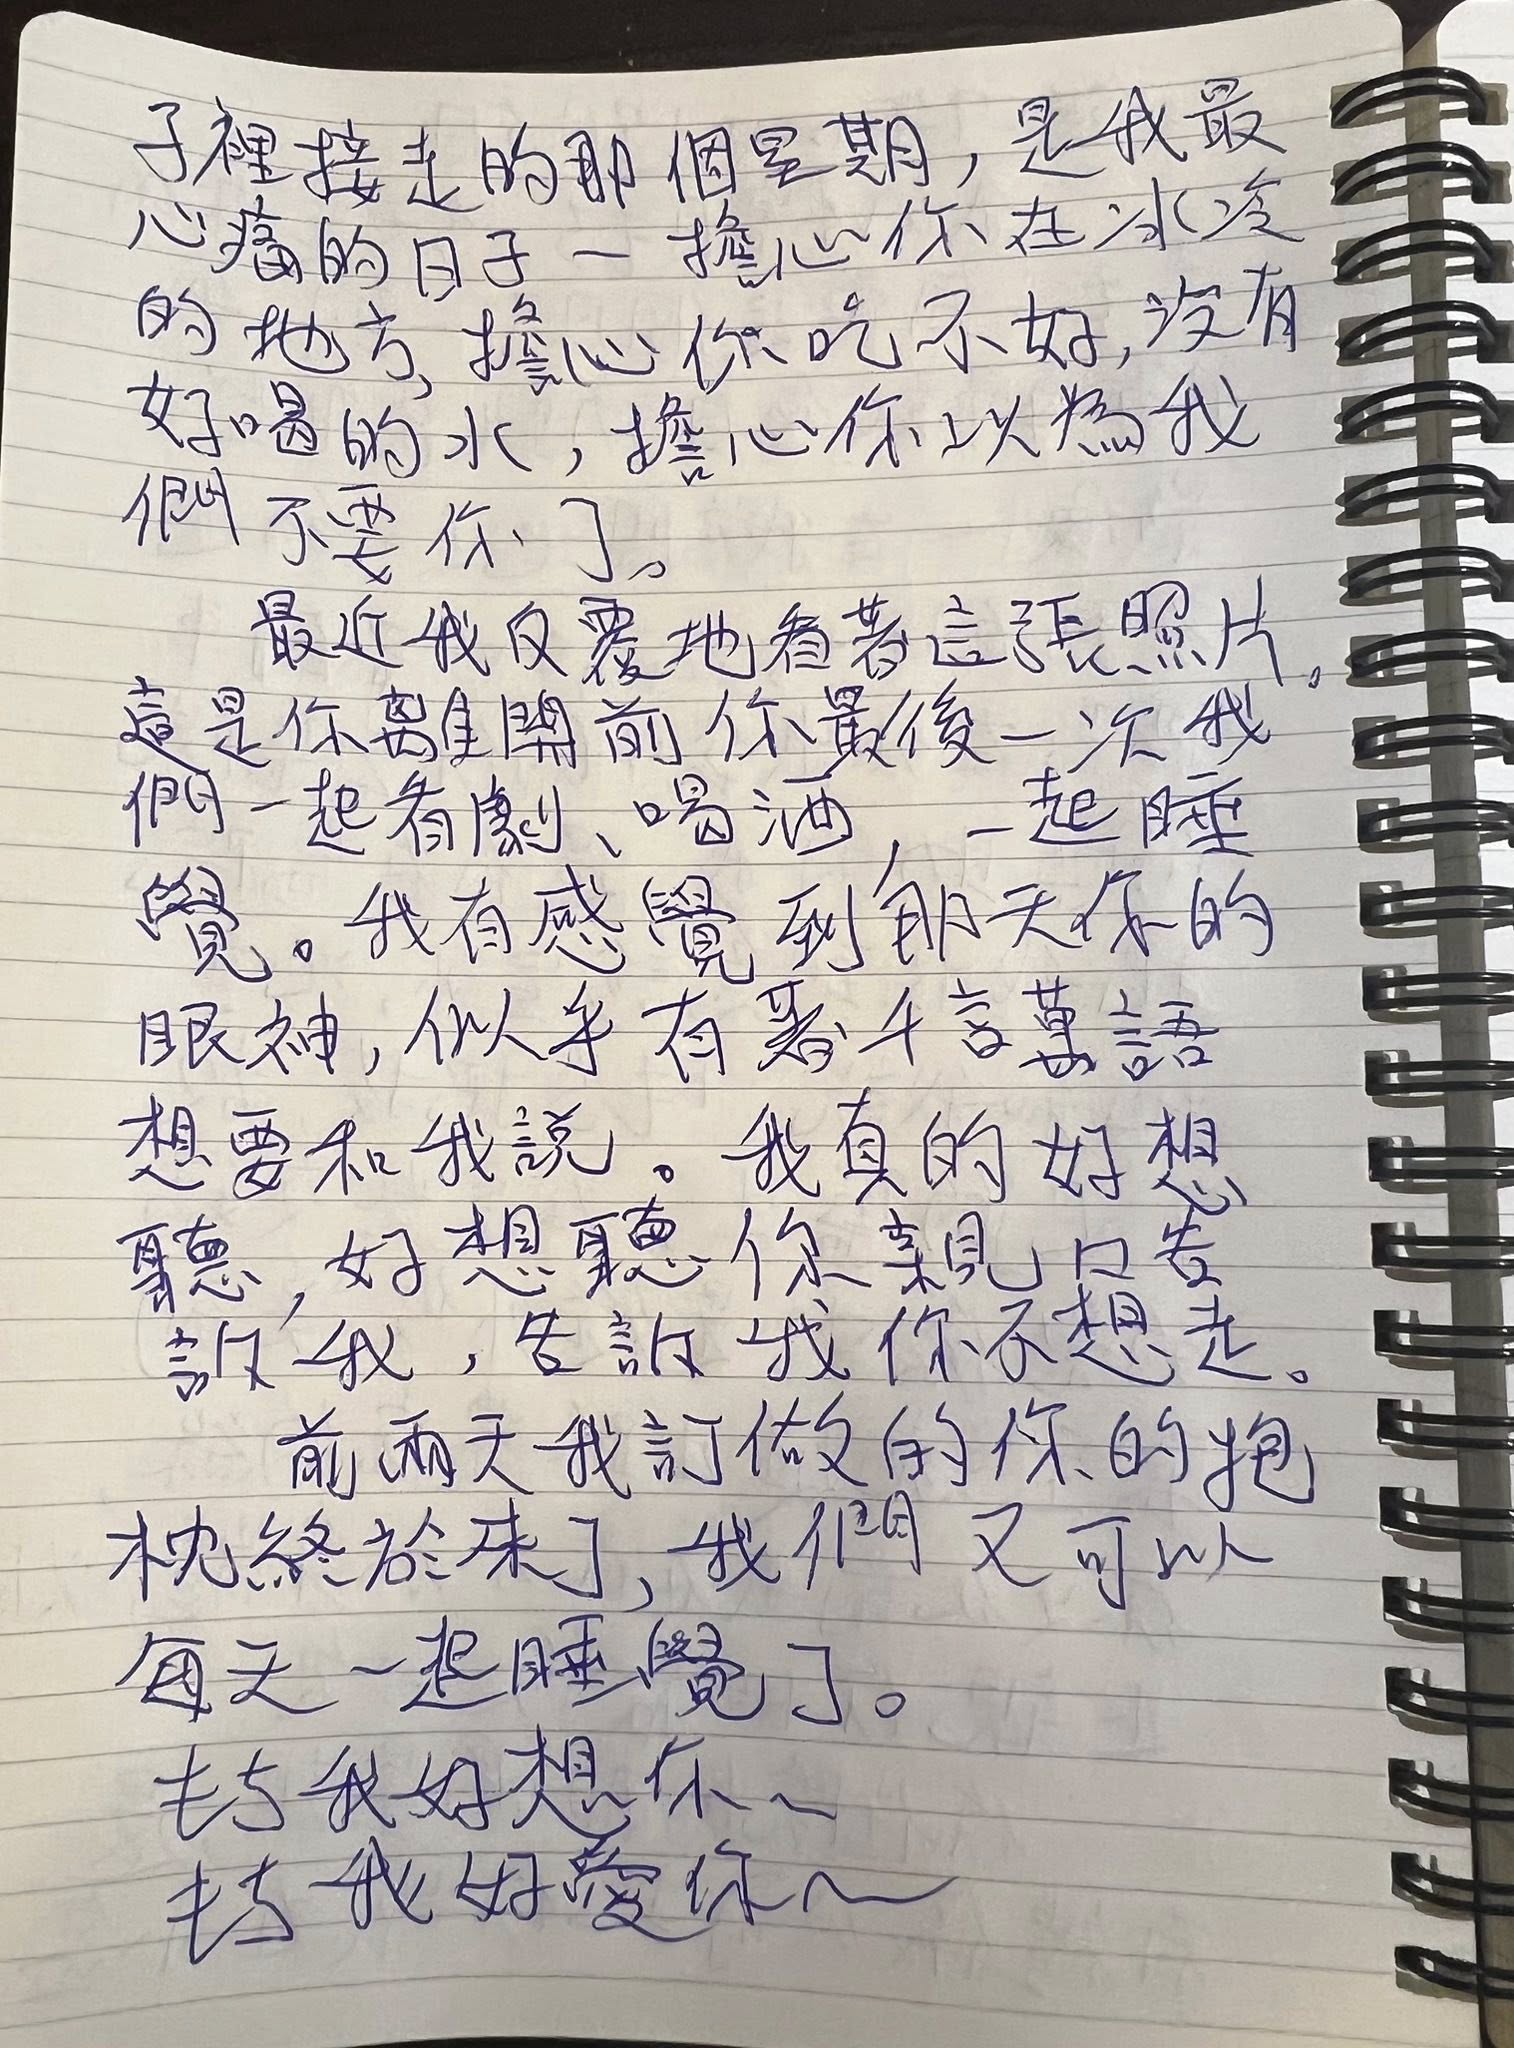 子裡接走的那個星期，是我最
心痛的日子－擔心你在冰冷
的地方，擔心你吃不好，沒有
好喝的水，擔心你以為我
們不要你了。
最近我反覆地看著這張照片。
這是你離開前你最後一次我
們一起看劇、喝酒，一起睡
覺。我有感覺到那天你的
眼神，似乎有著千言萬語
想要和我說。我真的好想
聽，好想聽你親口告
訴我，告訴我你不想走。
前兩天我訂做的你的抱
枕終於來了，我們又可以
每天一起睡覺了。
我好想你～
我好愛你～